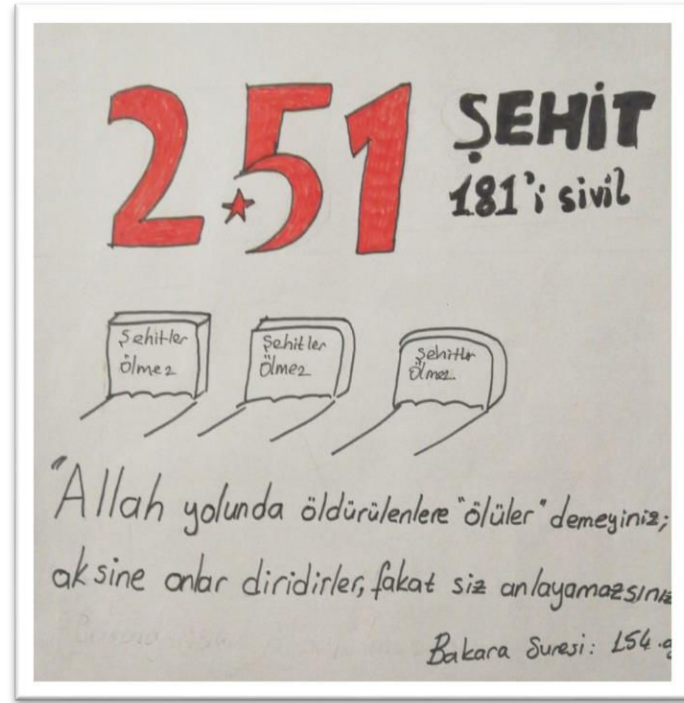 251 ŞEHİT
181'i sivil
Şehitler
ölmez
Şehitler
Ölmez
Şehitler
Ölmez
"Allah yolunda öldürülenlere "ölüler" demeyiniz;
aksine onlar diridirler, fakat siz anlayamazsınız
Bakara Suresi: 154.